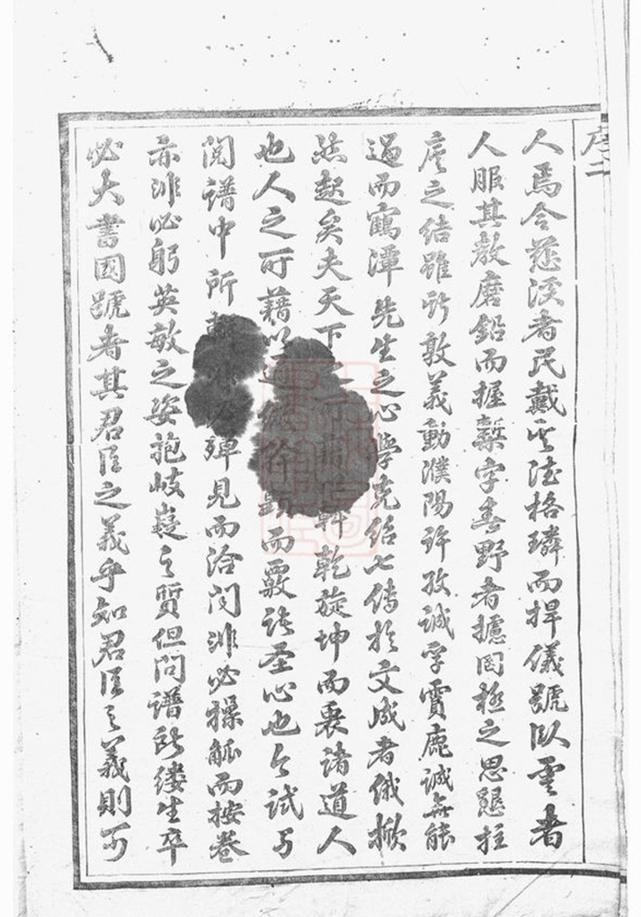 序二
人焉令慈溪者民戴其法格璘而捍儀號臥雲者
人服其教磨鉛而握槧字春野者攄罔極之思懇拄
序之結雖所敦義動濮陽許孜誠孚賓鹿誠無能
過而鶴潭先生之心學克紹七傳於文成者俄掀
然起矣夫天下之可斡乾旋坤而裹諸道人
也人之可藉以而覈諸聖心也今試與
閱譜中所殫見而洽聞非必操觚而按卷
亦非必躬英敏之姿抱岐嶷之質但問譜所缕生卒
必大書國號者其君臣之義乎知君臣之義則可